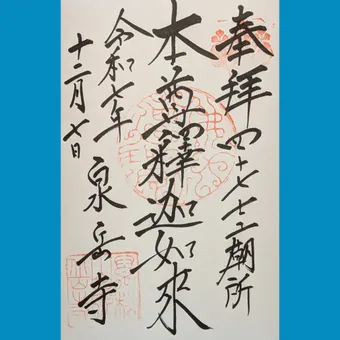 奉拝 四十七士廟所
本尊釋迦如來
泉岳寺
令和七年
十二月七日